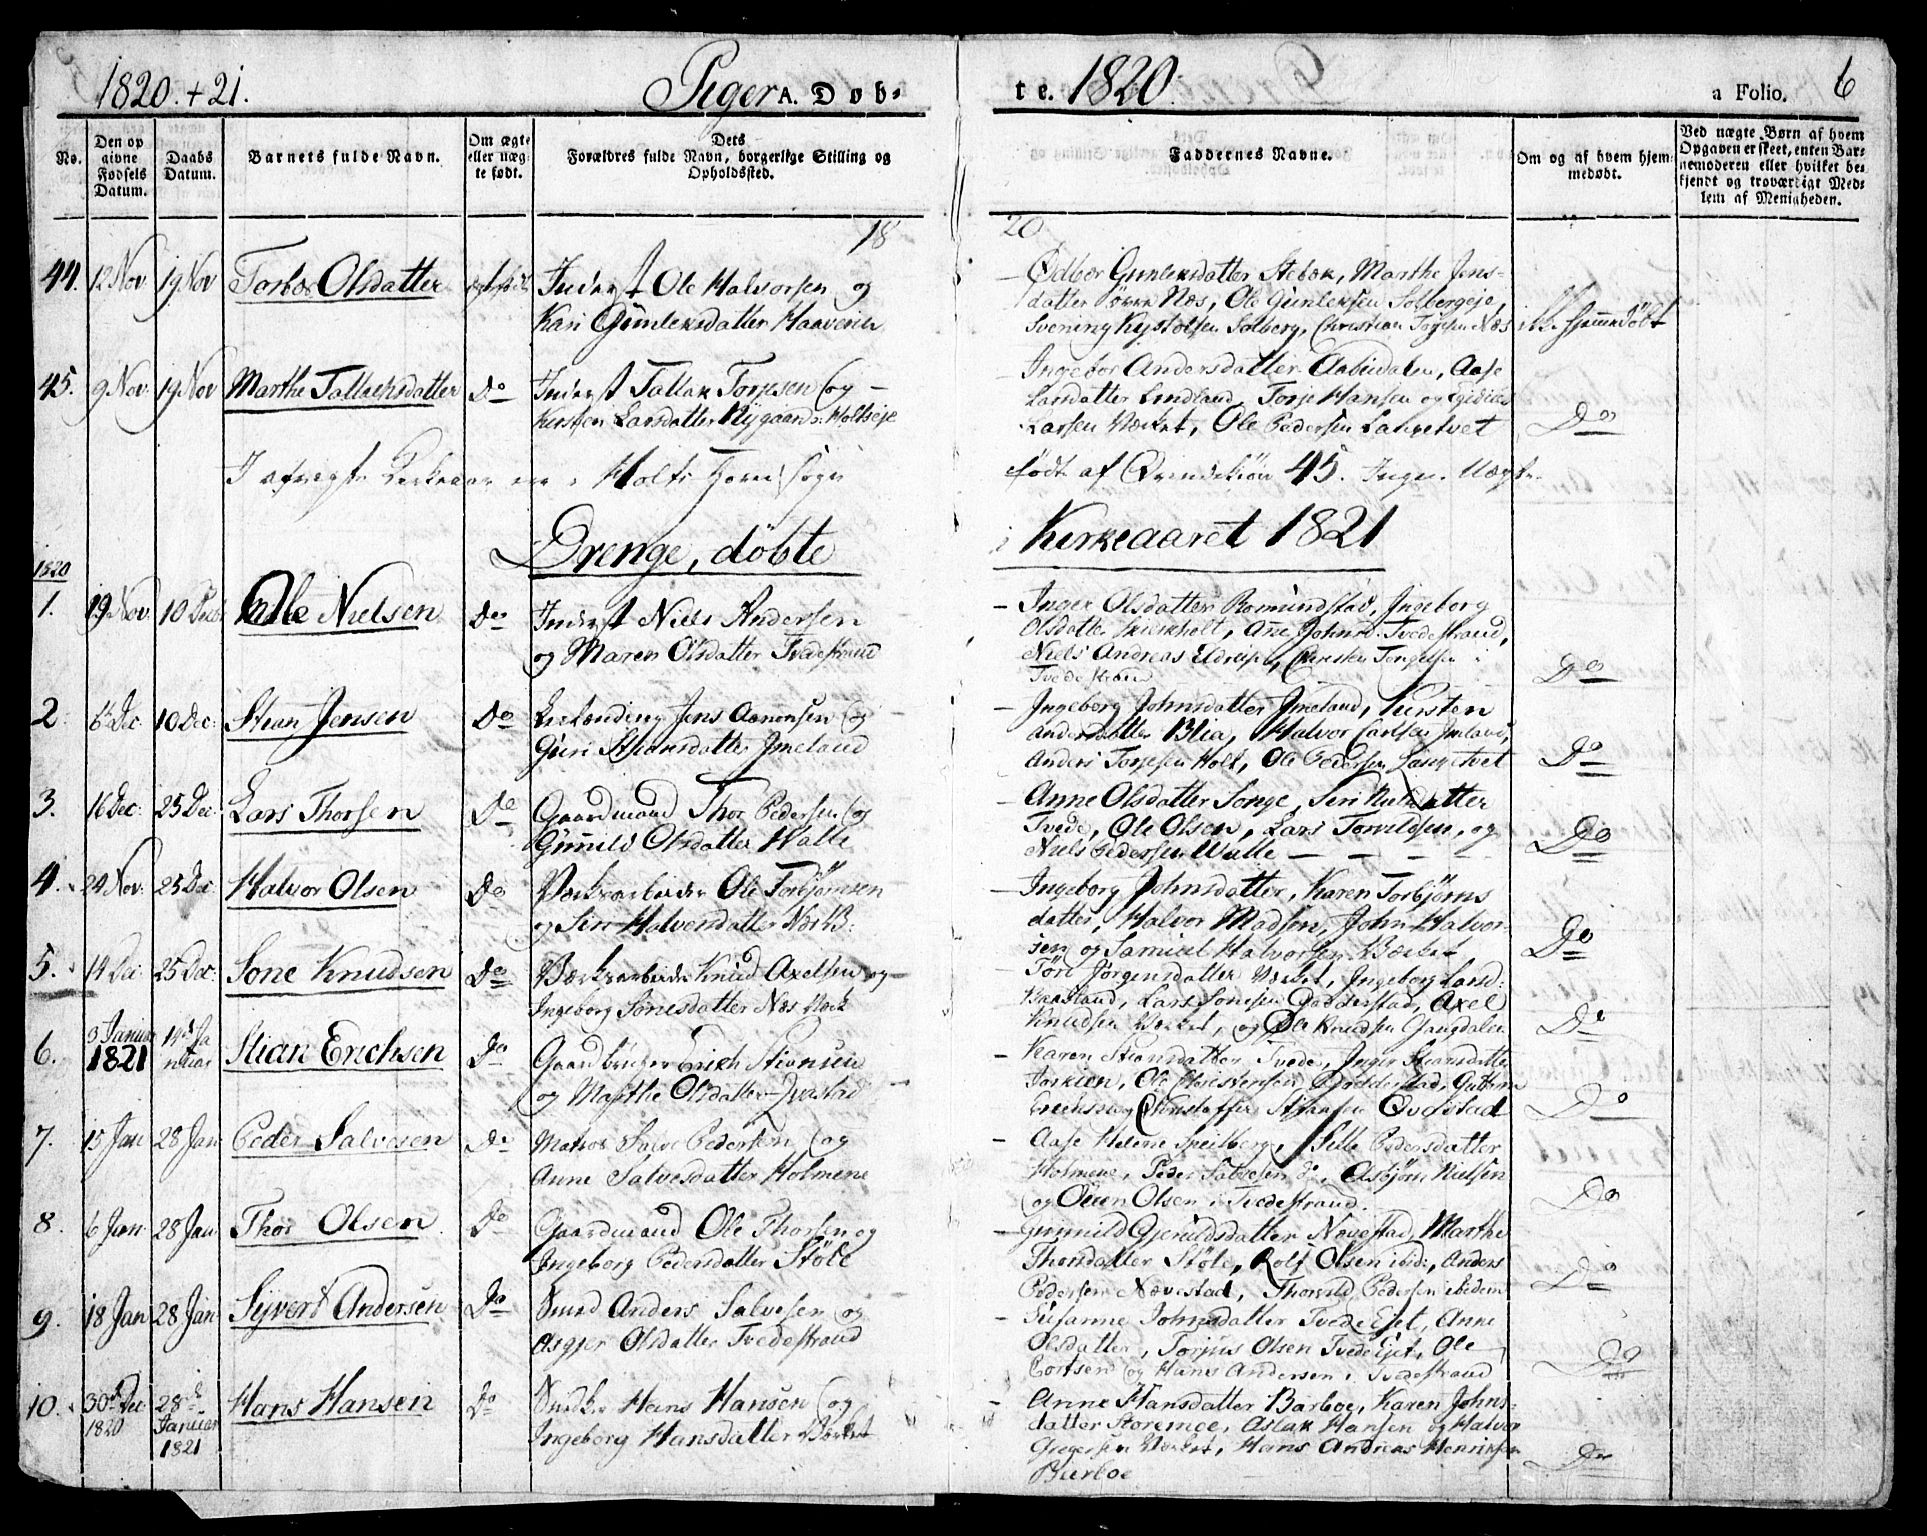 1820. + 21.
Piger A. Døb-
te. 1820.
a Folio. 6
No.
Den op
givne
Fødsels
Datum.
Daabs
Datum.
Barnets fulde Navn.
Om ægte
eller næg-
te født.
Dets
Forældres fulde Navn, borgerlige Stilling og
Opholdssted.
Faddernes Navne.
Om og af hvem hjem-
medøbt.
Ved nægte Børn af hvem
Opgaven er skeet, enten Bar-
nemoderen eller hvilket be-
kjendt og troværdigt Med-
lem af Menigheden.
18
20
44. 12 Nov 19 Nov Torbor Olsdatter
Inderst Ole Halvorsen og
Kari Gunleksdatter Haaverin
Ødbor Gunleksdatter Stebok, Marthe Jens-
datter Næs, Ole Gunleksen Solbergeje,
Svening Solberg, Christian Torjesen Næs
Hjemmedöbt
45. 9 Nov. 19 Nov Marthe Tallaksdatter Do
Inderst Tallak Torjesen og
Kirsten Larsdatter Nygaard Holtseje
Ingebor Andersdatter Aabudalen, Aase
Larsdatter Lindland, Torje Hansen og
Larsen Værket, Ole Pedersen Langetvet
Do
I afvegte Kirkeaar ere i Holts Hoved Sogn
födt af Qvindekiön 45. Ingen Uægte.
Drenge, döbte
i Kirkeaaret 1821
1820
1. 19 Nov. 10 Dec. Ole Nielsen Do
Inderst Niels Andersen
og Maren Olsdatter Tvedestrand
Inger Olsdatter Romundstad, Ingeborg
Olsdatter, Anne Johnsd. Tvedestrand,
Niels Andreas
Tvedestrand
Do
2. 6 Dec. 10 Dec: Stian Jensen Do
Jens Aanonsen og
Guri Stiansdatter Imeland
Ingeborg Johnsdatter Imeland, Kirsten
Andersdatter Blia, Halvor Carlsen Imland,
Anders Torjesen Holt, Ole Pedersen Langetvet
Do
3. 16 Dec: 25 Dec: Lars Thorsen Do
Gaardmand Thor Pedersen og
Gunnild Olsdatter Walle
Anne Olsdatter Songe, Siri datter
Tvede, Ole Olsen, Lars Torvildsen, og
Niels Pedersen Walle
Do
4. 24 Nov: 25 Dec Halvor Olsen Do
Værksarbeider Ole Torbjörnsen
og Siri Halvorsdatter
Ingeborg Johnsdatter, Karen Torbjörns
datter, Halvor Madsen, John Halvor-
sen og Samuel Halvorsen Værket
Do
5. 14 Dec: 25 Dec: Sone Knudsen Do
Værksarbeider Knud Axelsen og
Ingeborg Sonesdatter Næs Værk
Töre Jörgensdatter Værket, Ingeborg Larsd:
Baastland, Lars Sonesen Dödderstad, Axel
Knudsen Værket, og Ole Knudsen Gangdalen
Do
6. 3 Januar 1821 14de Januar Stian Erichsen Do
Gaardbruger Erich Stiansen
og Marthe Olsdatter Qvastad
Karen Stiansdatter Tvede, Inger Stiansdatter
Torkien, Ole Christensen Dödderstad, Guttorm
Erichsen og Christoffer Stiansen Qvastad
Do
7. 15 Jan 28 Jan Peder Salvesen Do
Matros Salve Pedersen og
Anne Salvesdatter Holmene
Aase Helene Speilberg, Sille Pedersdatter
Holmene, Peder Salvesen do, Asbjörn Nielsen
og Ouen Olsen i Tvedestrand.
Do
8. 6 Jan: 28 Jan Thor Olsen Do
Gaardmand Ole Thorsen og
Ingeborg Pedersdatter Stöle
Gunnild Gjeruldsdatter Nævestad, Marthe
Thorsdatter Stöle, Rolf Olsen ibid:, Anders
Pedersen Nævestad, Thorvild Pedersen ibidem
Do
9. 18 Jan 28 Jan Syvert Andersen Do
Smed Anders Salvesen og
Asgjer Olsdatter Tvedestrand
Susanne Johnsdatter TvedeEjet, Anne
Olsdatter, Torjus Olsen TvedeEjet, Ole
og Hans Andersen i Tvedestrand
Do
10. 30 Dec 1820 28de Januar 1821 Hans Hansen Do
Hans Hansen og
Ingeborg Hansdatter Værket
Anne Hansdatter Barboe, Karen Johns-
datter Storemoe, Aslak Hansen og Halvor
Gregersen Værket, Hans Andreas Henriksen
Barboe
Do